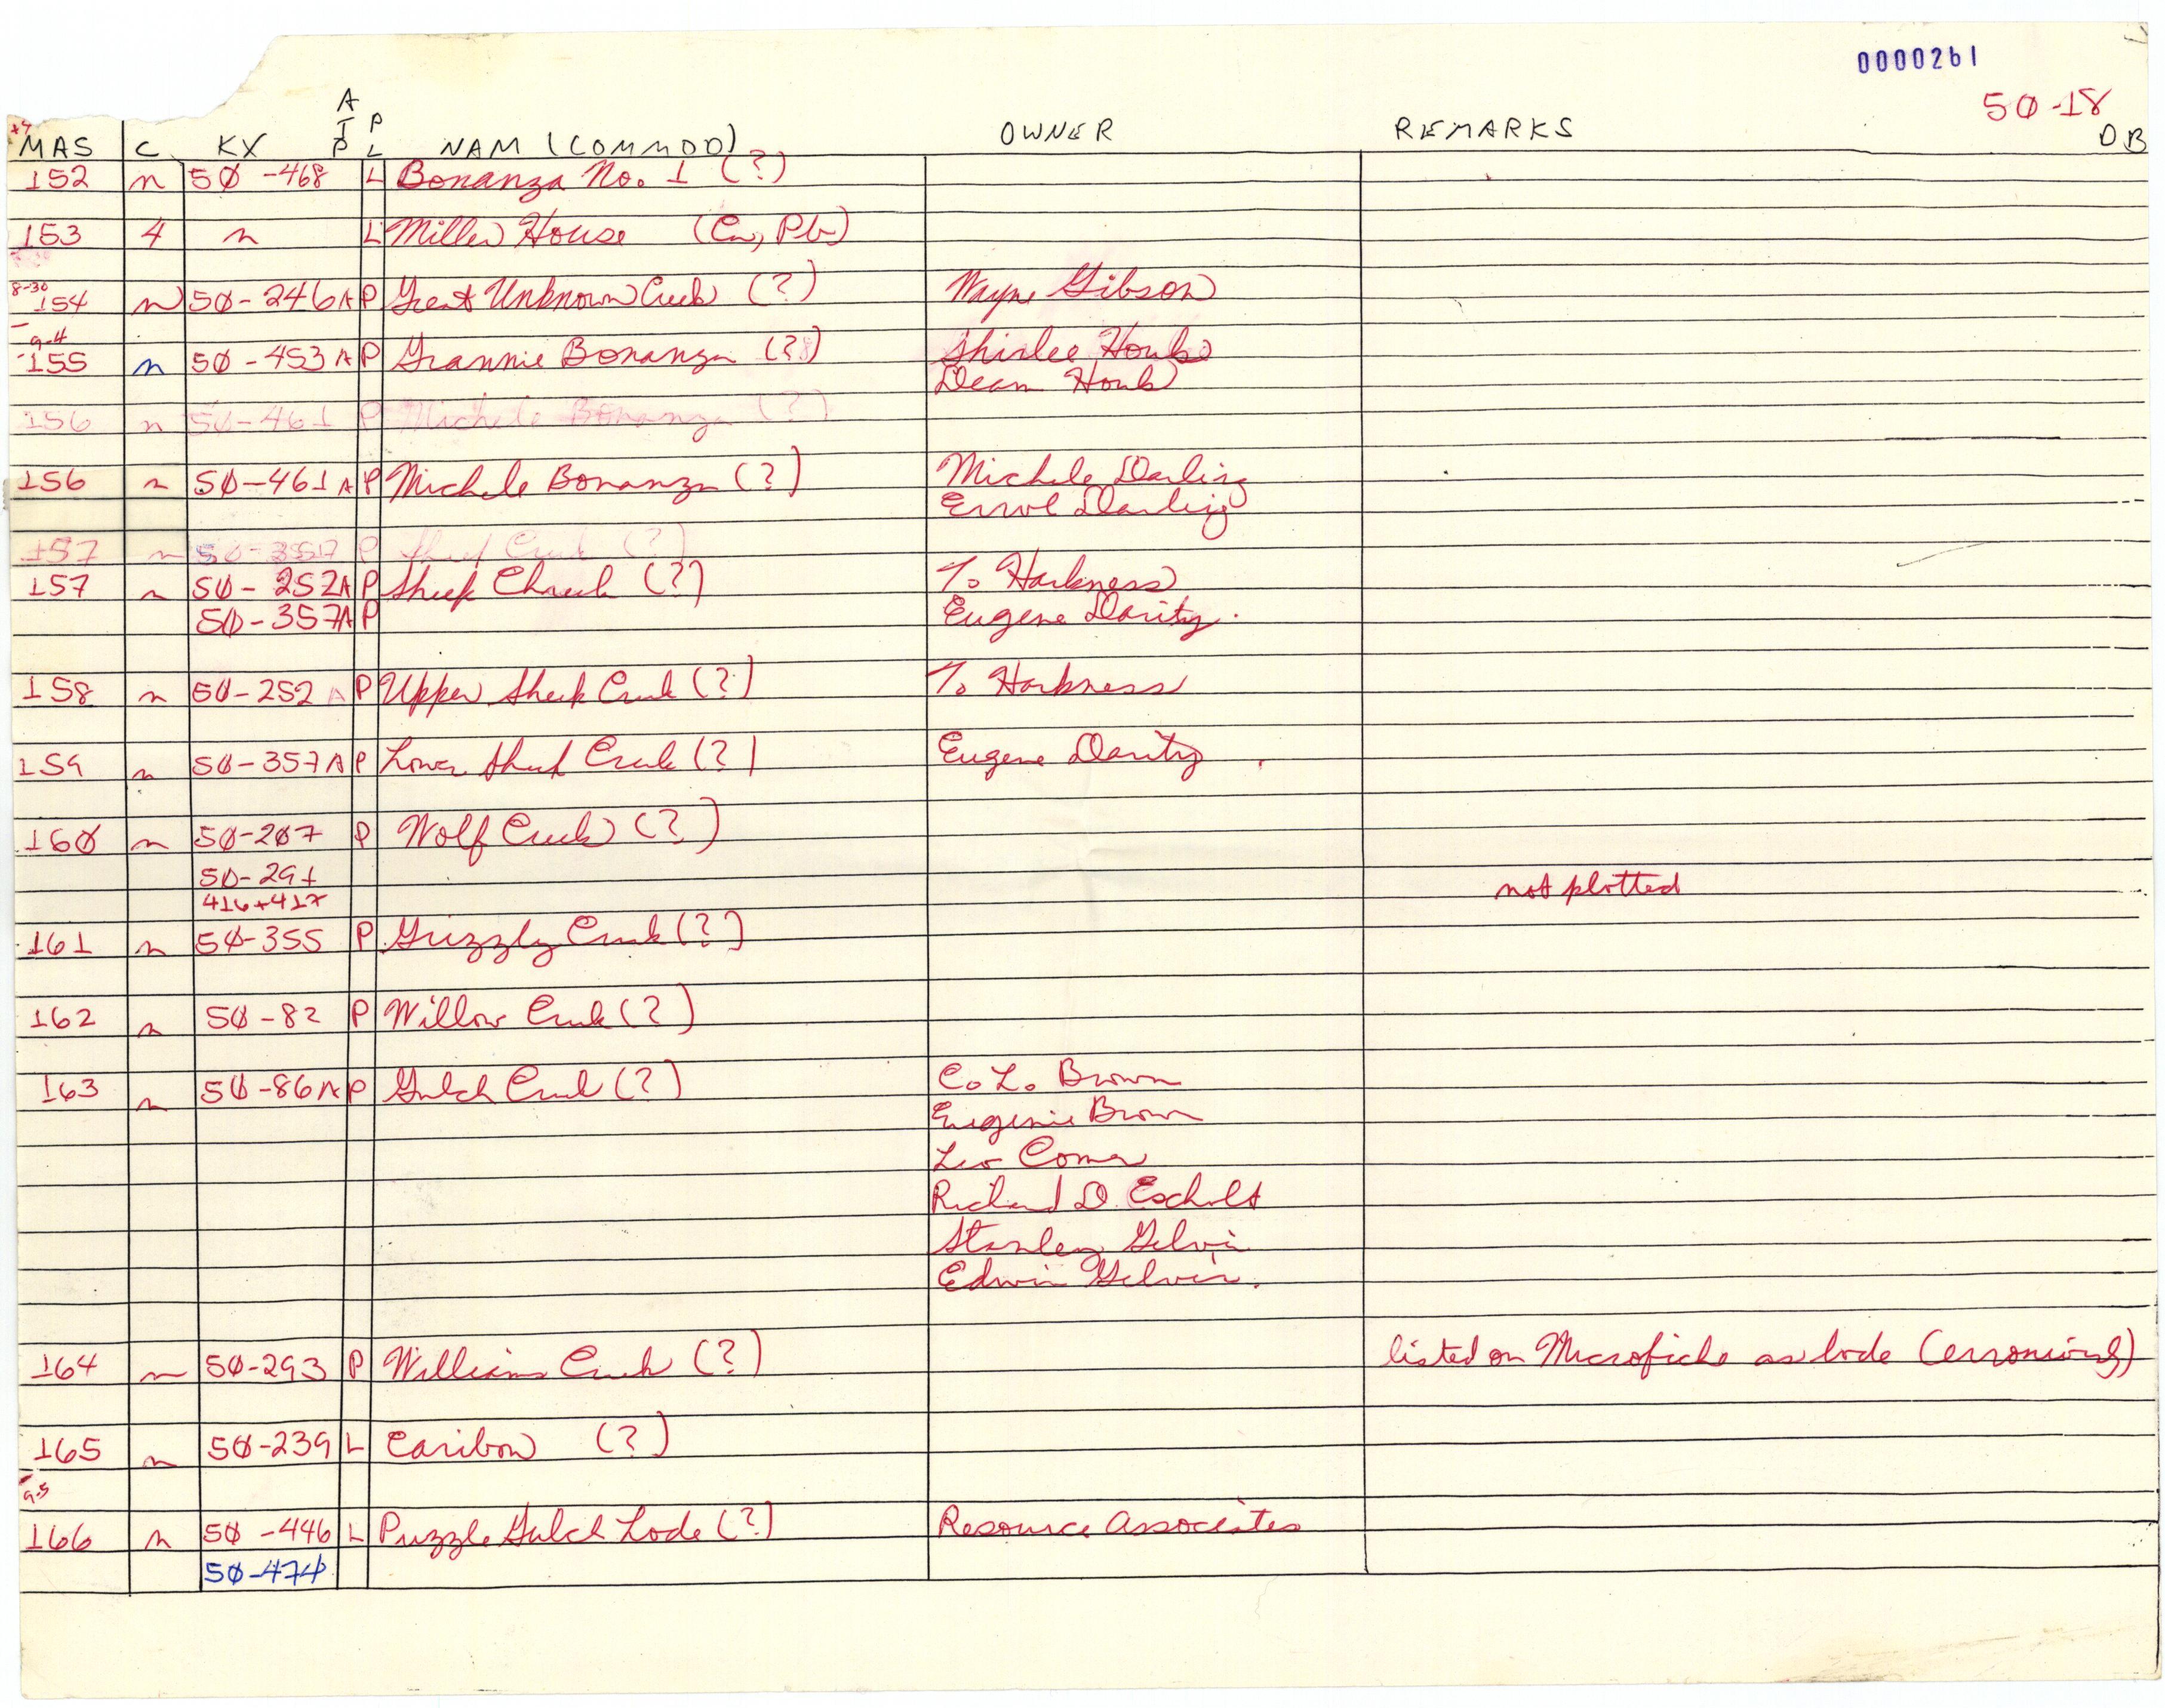 0000261
50-18
DB
MAS C KX A/P P/L NAM (COMMOD) OWNER REMARKS
152 n 5Ø-468 L Bonanza No. 1 (?)
153 4 n L Miller House (Cu, Pb)
8-30
154 n 5Ø-246 A P Great Unknown Creek (?) Wayne Gibson
9-4
155 n 5Ø-453 A P Grannie Bonanza (?) Shirlee Houb
Dean Houb
156 n 5Ø-461 P Michele Bonanza (?)
156 n 5Ø-461 A P Michele Bonanza (?) Michele Darling
Errol Darling
157 n 5Ø-357 P Sheep Creek (?)
157 n 5Ø-252 A P Sheep Chreek (?) T. Harkness
5Ø-357 A P Eugene Darity
158 n 5Ø-252 A P Upper Sheep Creek (?) T. Harkness
159 n 5Ø-357 A P Lower Sheep Creek (?) Eugene Darity
16Ø n 5Ø-2Ø7 P Wolf Creek (?)
5Ø-291 not plotted
416+417
161 n 5Ø-355 P Grizzly Creek (?)
162 n 5Ø-82 P Willow Creek (?)
163 n 5Ø-86 A P Gulch Creek (?) C. L. Brown
Eugenie Brown
Leo Comer
Richard D. Escholt
Stanley Gelvin
Edwin Gelvin.
164 n 5Ø-293 P Williams Creek (?) listed on Microfiche as lode (erroniously)
165 n 5Ø-239 L Caribou (?)
9-5
166 n 5Ø-446 L Puzzle Gulch Lode (?) Resource Associates
5Ø-474